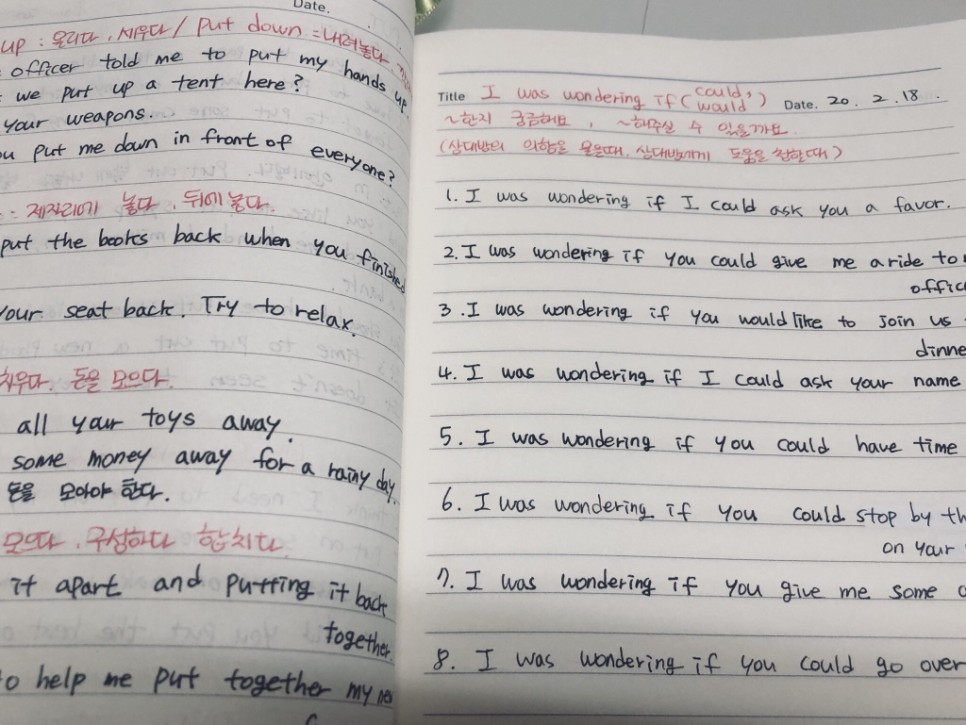 Date.
up : 올리다, 세우다 / put down = 내려놓다
officer told me to put my hands up.
we put up a tent here?
your weapons.
you put me down in front of everyone?
: 제자리에 놓다, 뒤에 놓다.
put the books back when you finished
your seat back. Try to relax.
치우다. 돈을 모으다.
all your toys away.
some money away for a rainy day.
돈을 모아야 한다.
모으다, 구성하다 합치다.
it apart and putting it back
together.
to help me put together my new
Title I was wondering if (could, would) Date. 20. 2. 18.
~한지 궁금해요, ~해주실 수 있을까요.
(상대방의 의향을 물을때, 상대방에게 도움을 청할때)
1. I was wondering if I could ask you a favor.
2. I was wondering if you could give me a ride to
office
3. I was wondering if you would like to join us
dinner
4. I was wondering if I could ask your name
5. I was wondering if you could have time
6. I was wondering if you could stop by th
on your
7. I was wondering if you give me some
8. I was wondering if you could go over